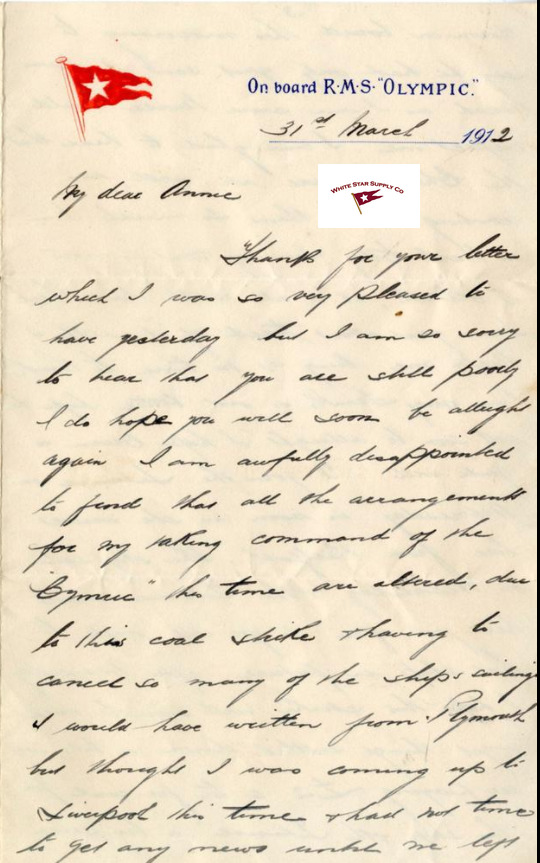 On board R·M·S· "OLYMPIC."
31st March 1912
WHITE STAR SUPPLY CO
My dear Annie
Thanks for your letter
which I was so very pleased to
have yesterday but I am so sorry
to hear that you are still poorly
I do hope you will soon be allright
again I am awfully disappointed
to find that all the arrangements
for my taking command of the
"Cymric" this time are altered, due
to this coal strike & having to
cancel so many of the ships sailing
I would have written from Plymouth
but thought I was coming up to
Liverpool this time & had not time
to get any news until we left